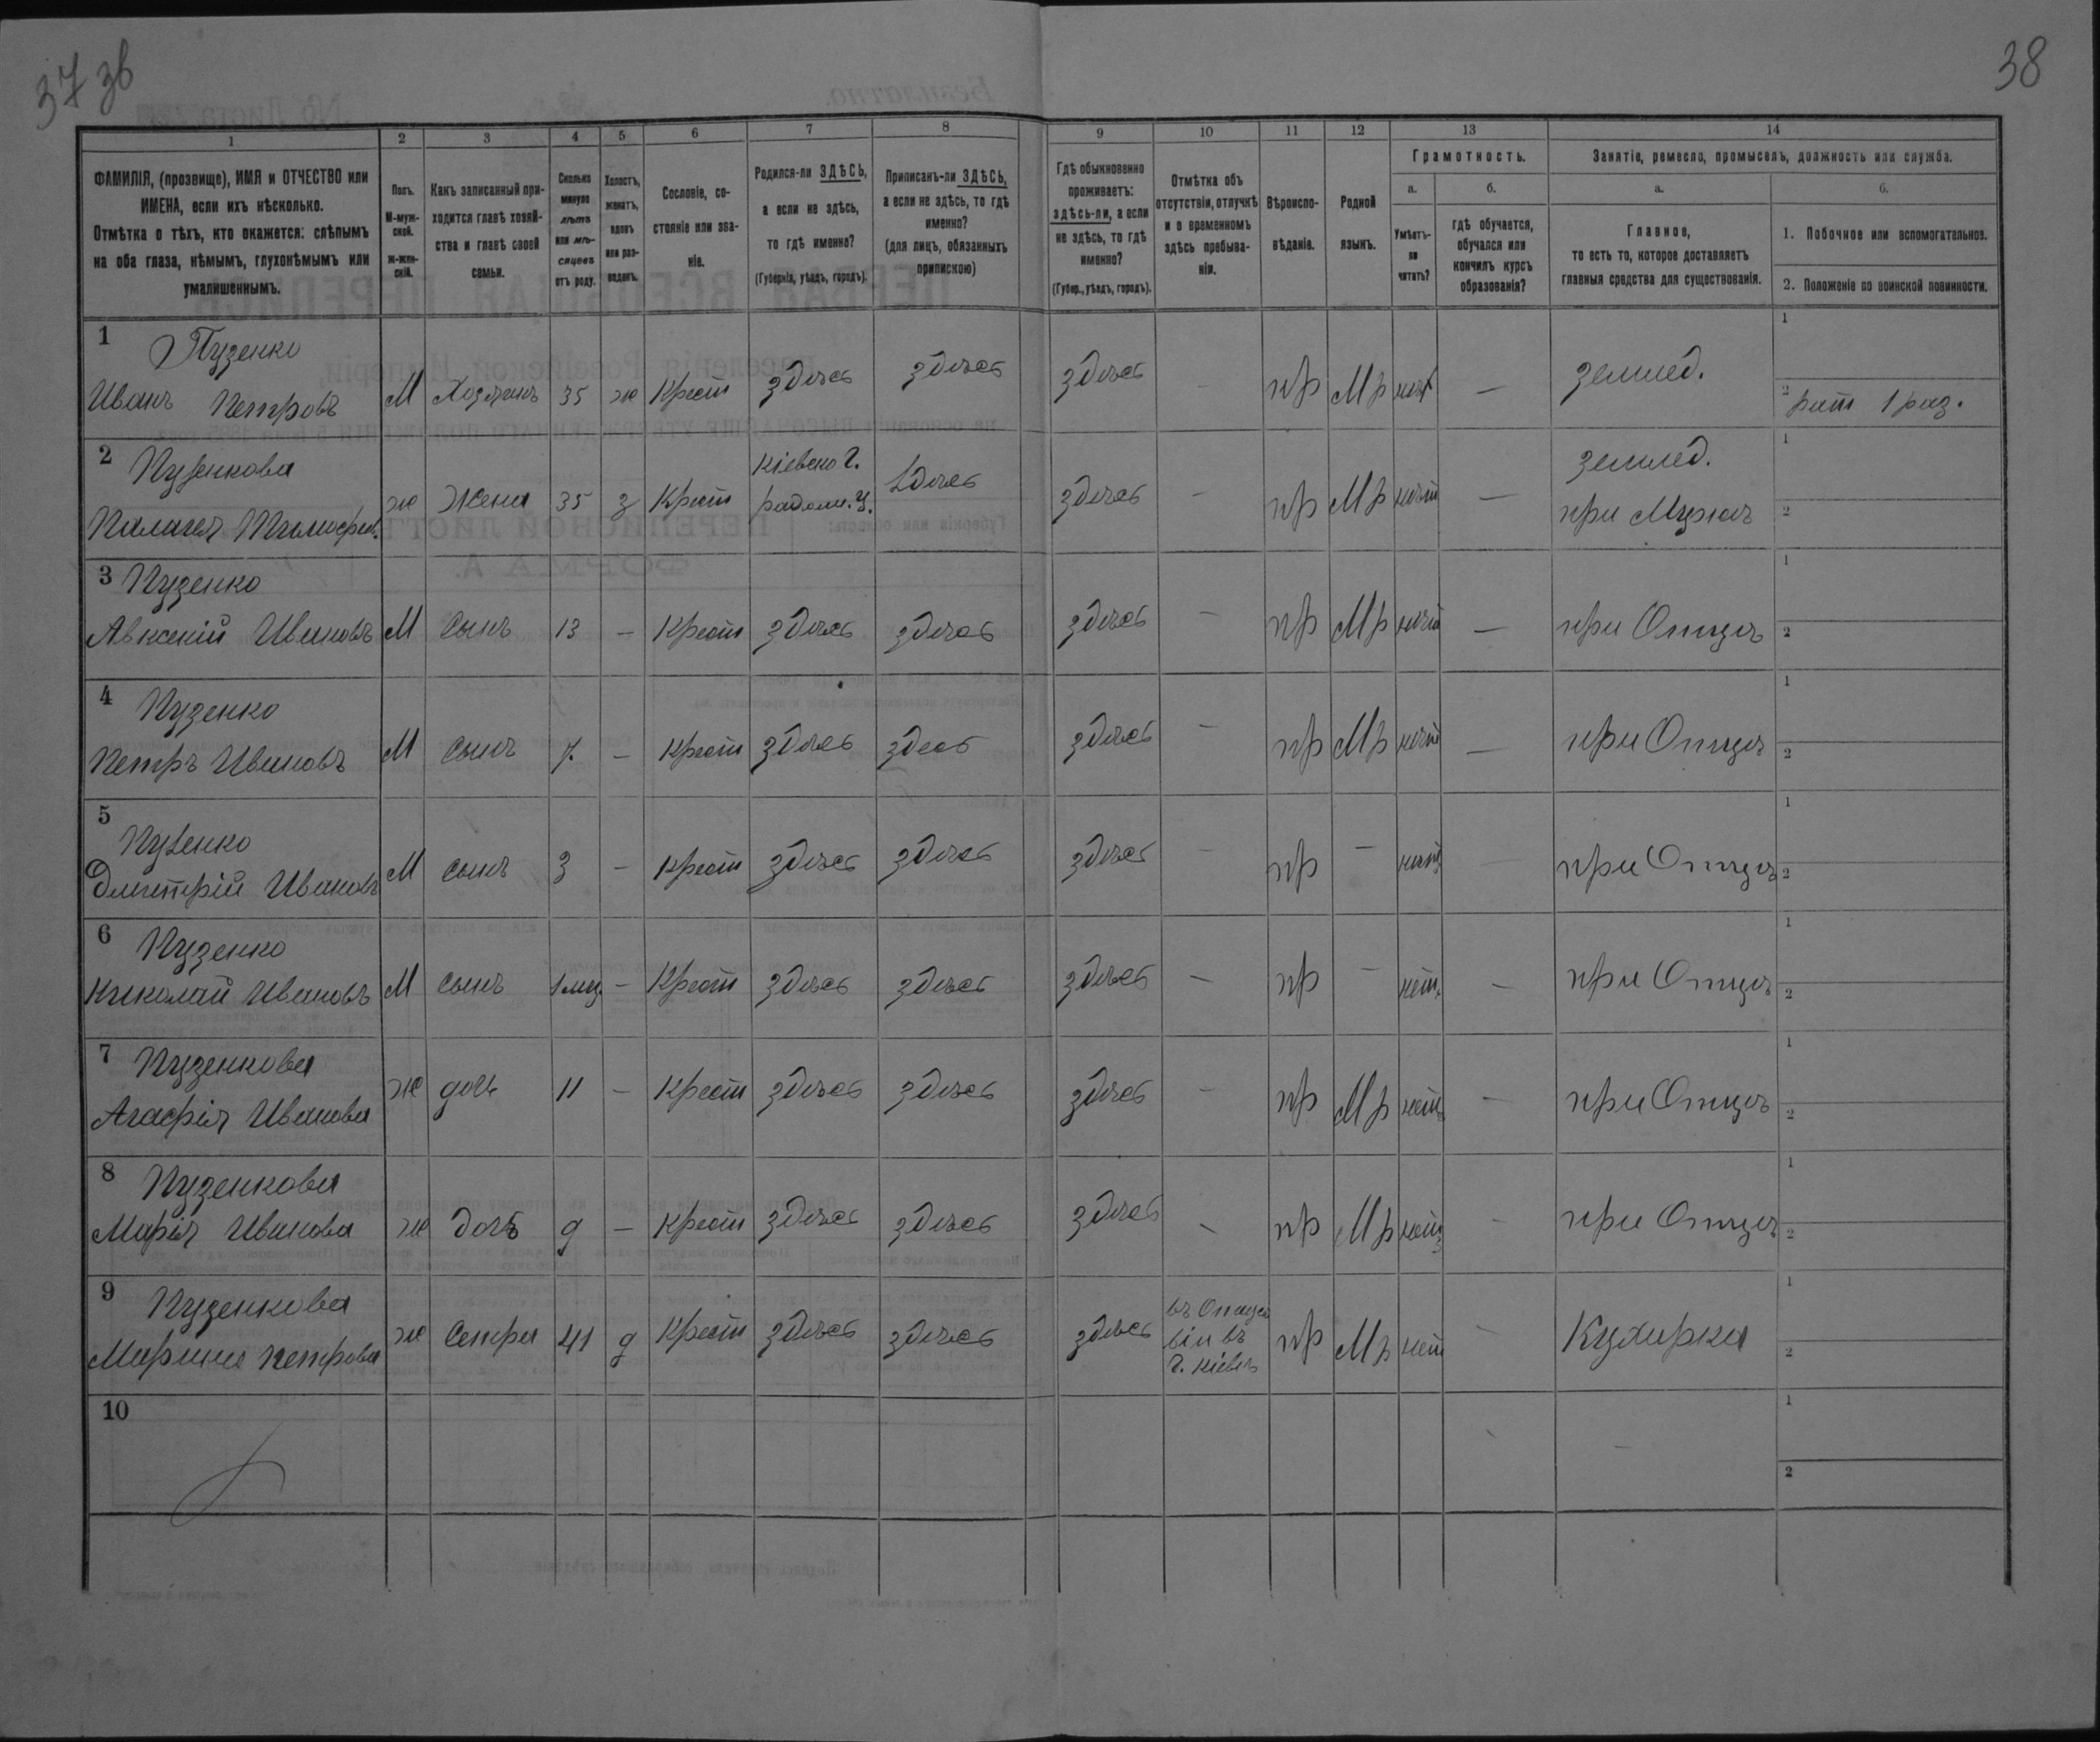 37 зв
38
1
2
3
4
5
6
7
8
9
10
11
12
13
14
ФАМИЛІЯ, (прозвище), ИМЯ и ОТЧЕСТВО или
ИМЕНА, если ихъ нѣсколько.
Отмѣтка о тѣхъ, кто окажется: слѣпымъ
на оба глаза, нѣмымъ, глухонѣмымъ или
умалишеннымъ.
Полъ.
М-муж-
ской.
ж-жен-
скій.
Какъ записанный при-
ходится главѣ хозяй-
ства и главѣ своей
семьи.
Сколько
минуло
лѣтъ
или мѣ-
сяцевъ
отъ роду.
Холостъ,
женатъ,
вдовъ
или раз-
веденъ.
Сословіе, со-
стояніе или зва-
ніе.
Родился-ли ЗДѢСЬ,
а если не здѣсь,
то гдѣ именно?
(Губернія, уѣздъ, городъ).
Приписанъ-ли ЗДѢСЬ,
а если не здѣсь, то гдѣ
именно?
(для лицъ, обязанныхъ
припискою)
Гдѣ обыкновенно
проживаетъ:
здѣсь-ли, а если
не здѣсь, то гдѣ
именно?
(Губер., уѣздъ, городъ).
Отмѣтка объ
отсутствіи, отлучкѣ
и о временномъ
здѣсь пребыва-
ніи.
Вѣроиспо-
вѣданіе.
Родной
языкъ.
Грамотность.
а.
б.
Умѣетъ-
ли
читать?
гдѣ обучается,
обучался или
кончилъ курсъ
образованія?
Занятіе, ремесло, промыселъ, должность или служба.
а.
б.
Главное,
то есть то, которое доставляетъ
главныя средства для существованія.
1. Побочное или вспомогательное.
2. Положеніе по воинской повинности.
1 Пузенко
Иванъ Петровъ М Хозяинъ 35 ж Крест здѣсь здѣсь здѣсь - пр Мр нѣт — землед.
1
2 рат 1 раз.
2 Пузенкова
Палагея ж Жена 35 з Крест Кіевско г. радом. у. здѣсь здѣсь - пр Мр нѣт — землед.
при Мужѣ
1
2
3 Пузенко
Авксеній Ивановъ М сынъ 13 - Крест здѣсь здѣсь здѣсь - пр Мр нѣт — при Отцѣ
1
2
4 Пузенко
Петръ Ивановъ М сынъ 7. - Крест здѣсь здесь здѣсь - пр Мр нѣт — при Отцѣ
1
2
5 Пузенко
Дмитрій Ивановъ М сынъ 3 - Крест здѣсь здѣсь здѣсь - пр - нѣт - при Отцѣ
1
2
6 Пузенко
Николай Ивановъ М сынъ 1 мц. - Крест здѣсь здѣсь здѣсь - пр - нет. - при Отцѣ
1
2
7 Пузенкова
Агафія Иванова ж дочь 11 - Крест здѣсь здѣсь здѣсь - пр Мр нет - при Отцѣ
1
2
8 Пузенкова
Марія Иванова ж дочь 9 - Крест здѣсь здѣсь здѣсь - пр Мр нет - при Отцѣ
1
2
9 Пузенкова
Марина Петрова ж Сестра 41 д Крест здѣсь здѣсь здѣсь въ г. Кіевѣ пр Мр нет - Кухарка
1
2
10
1
2